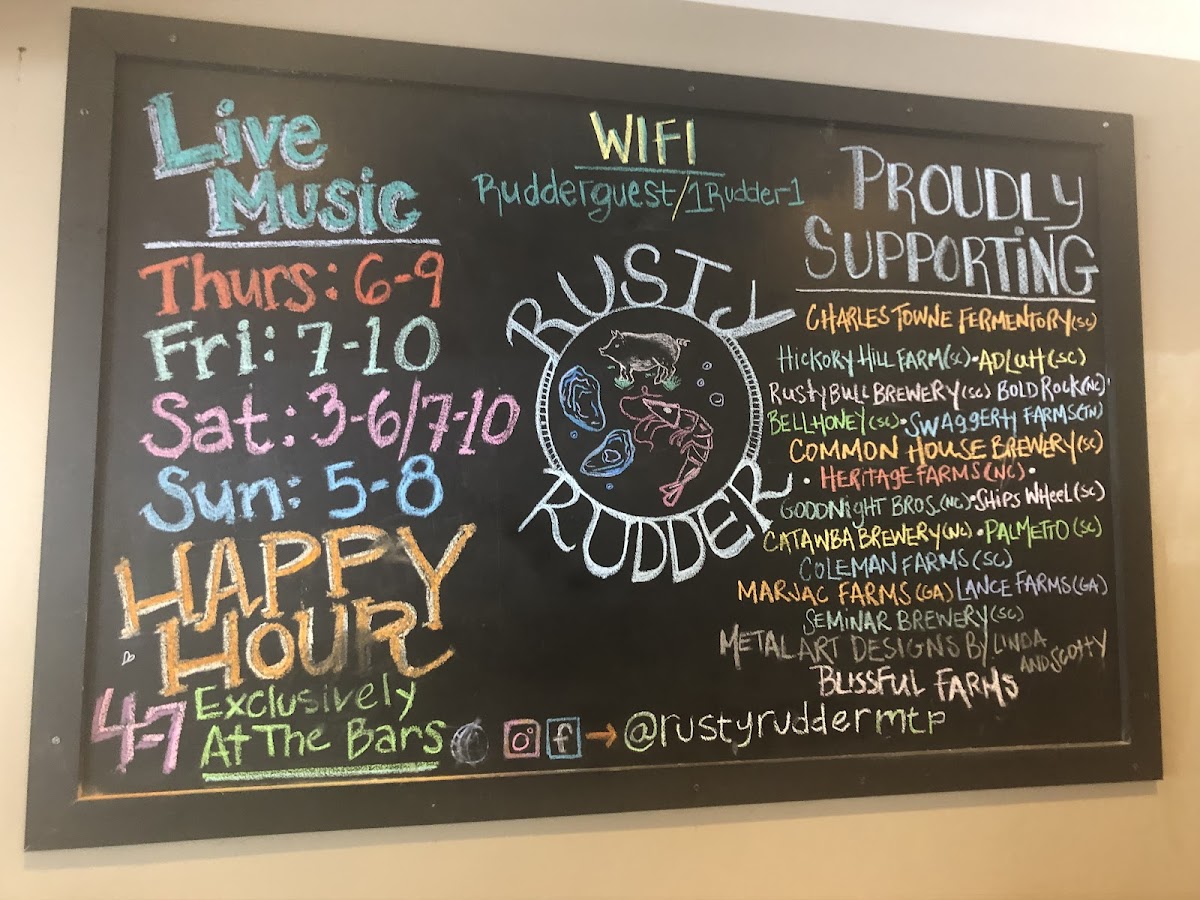 Live
Music
Thurs: 6-9
Fri: 7-10
Sat: 3-6/7-10
Sun: 5-8
HAPPY
HOUR
4-7
Exclusively
At The Bars
WIFI
Rudderguest/1Rudder1
RUSTY
RUDDER
@rustyruddermtp
PROUDLY
SUPPORTING
CHARLES TOWNE FERMENTORY (SC)
HICKORY HILL FARM (SC) • ADLUH (SC)
RUSTY BULL BREWERY (SC) BOLD ROCK (NC)
BELL HONEY (SC) • SWAGGERTY FARMS (TN)
COMMON HOUSE BREWERY (SC)
• HERITAGE FARMS (NC) •
GOODNIGHT BROS. (NC) • SHIPS WHEEL (SC)
CATAWBA BREWERY (NC) • PALMETTO (SC)
COLEMAN FARMS (SC)
MARJAC FARMS (GA) LANCE FARMS (GA)
SEMINAR BREWERY (SC)
METAL ART DESIGNS BY LINDA
AND SCOTTY
BLISSFUL FARMS